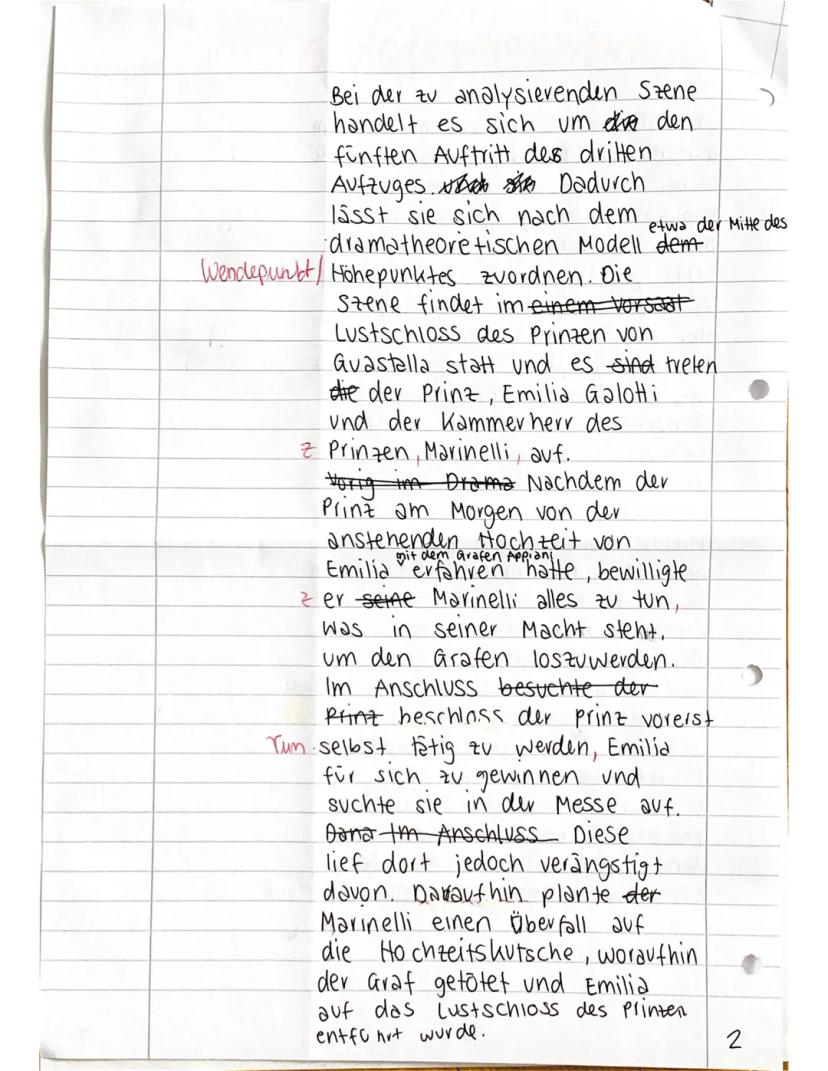 Bei der zu analysierenden Szene
handelt es sich um die den
fünften Auftritt des dritten
Aufzuges. Dadurch
lässt sie sich nach dem
etwa der Mitte des
dramatheoretischen Modell dem
Wendepunkt/ Höhepunktes zuordnen. Die
Szene findet im einem Vorsaal
Lustschloss des Prinzen von
Guastella statt und es sind treten
die der Prinz, Emilia Galotti
und der Kammerherr des
Z Prinzen, Marinelli, auf.
Vorig im Drama Nachdem der
Prinz am Morgen von der
anstehenden Hochzeit von
mit dem Grafen Appiani
Emilia erfahren hatte, bewilligte
Z er seine Marinelli alles zu tun,
was in seiner Macht steht,
um den Grafen loszuwerden.
Im Anschluss besuchte der
Prinz beschloss der Prinz vorerst
selbst tätig zu werden, Emilia
für sich zu gewinnen und
suchte sie in der Messe auf.
Im Anschluss Diese
lief dort jedoch verängstigt
davon. Daraufhin plante der
Marinelli einen Überfall auf
die Hochzeitskutsche, woraufhin
der Graf getötet und Emilia
auf das Lustschloss des Prinzen
entführt wurde.
2